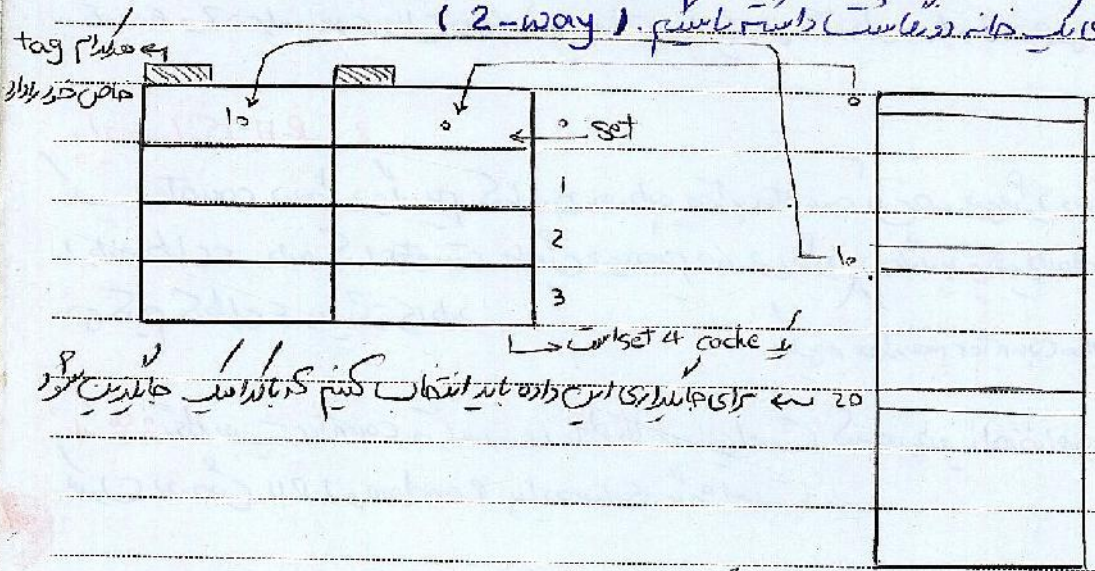 یک خانه دو نگاشت داشته باشیم. (2-way)
هر کدام tag
خاص خود را دارد
10
0
0 set
0
1
2
10
3
یک cache 4 set است
20 ← برای جایگذاری این داده باید انتخاب کنیم که با کدامیک جایگزین شود